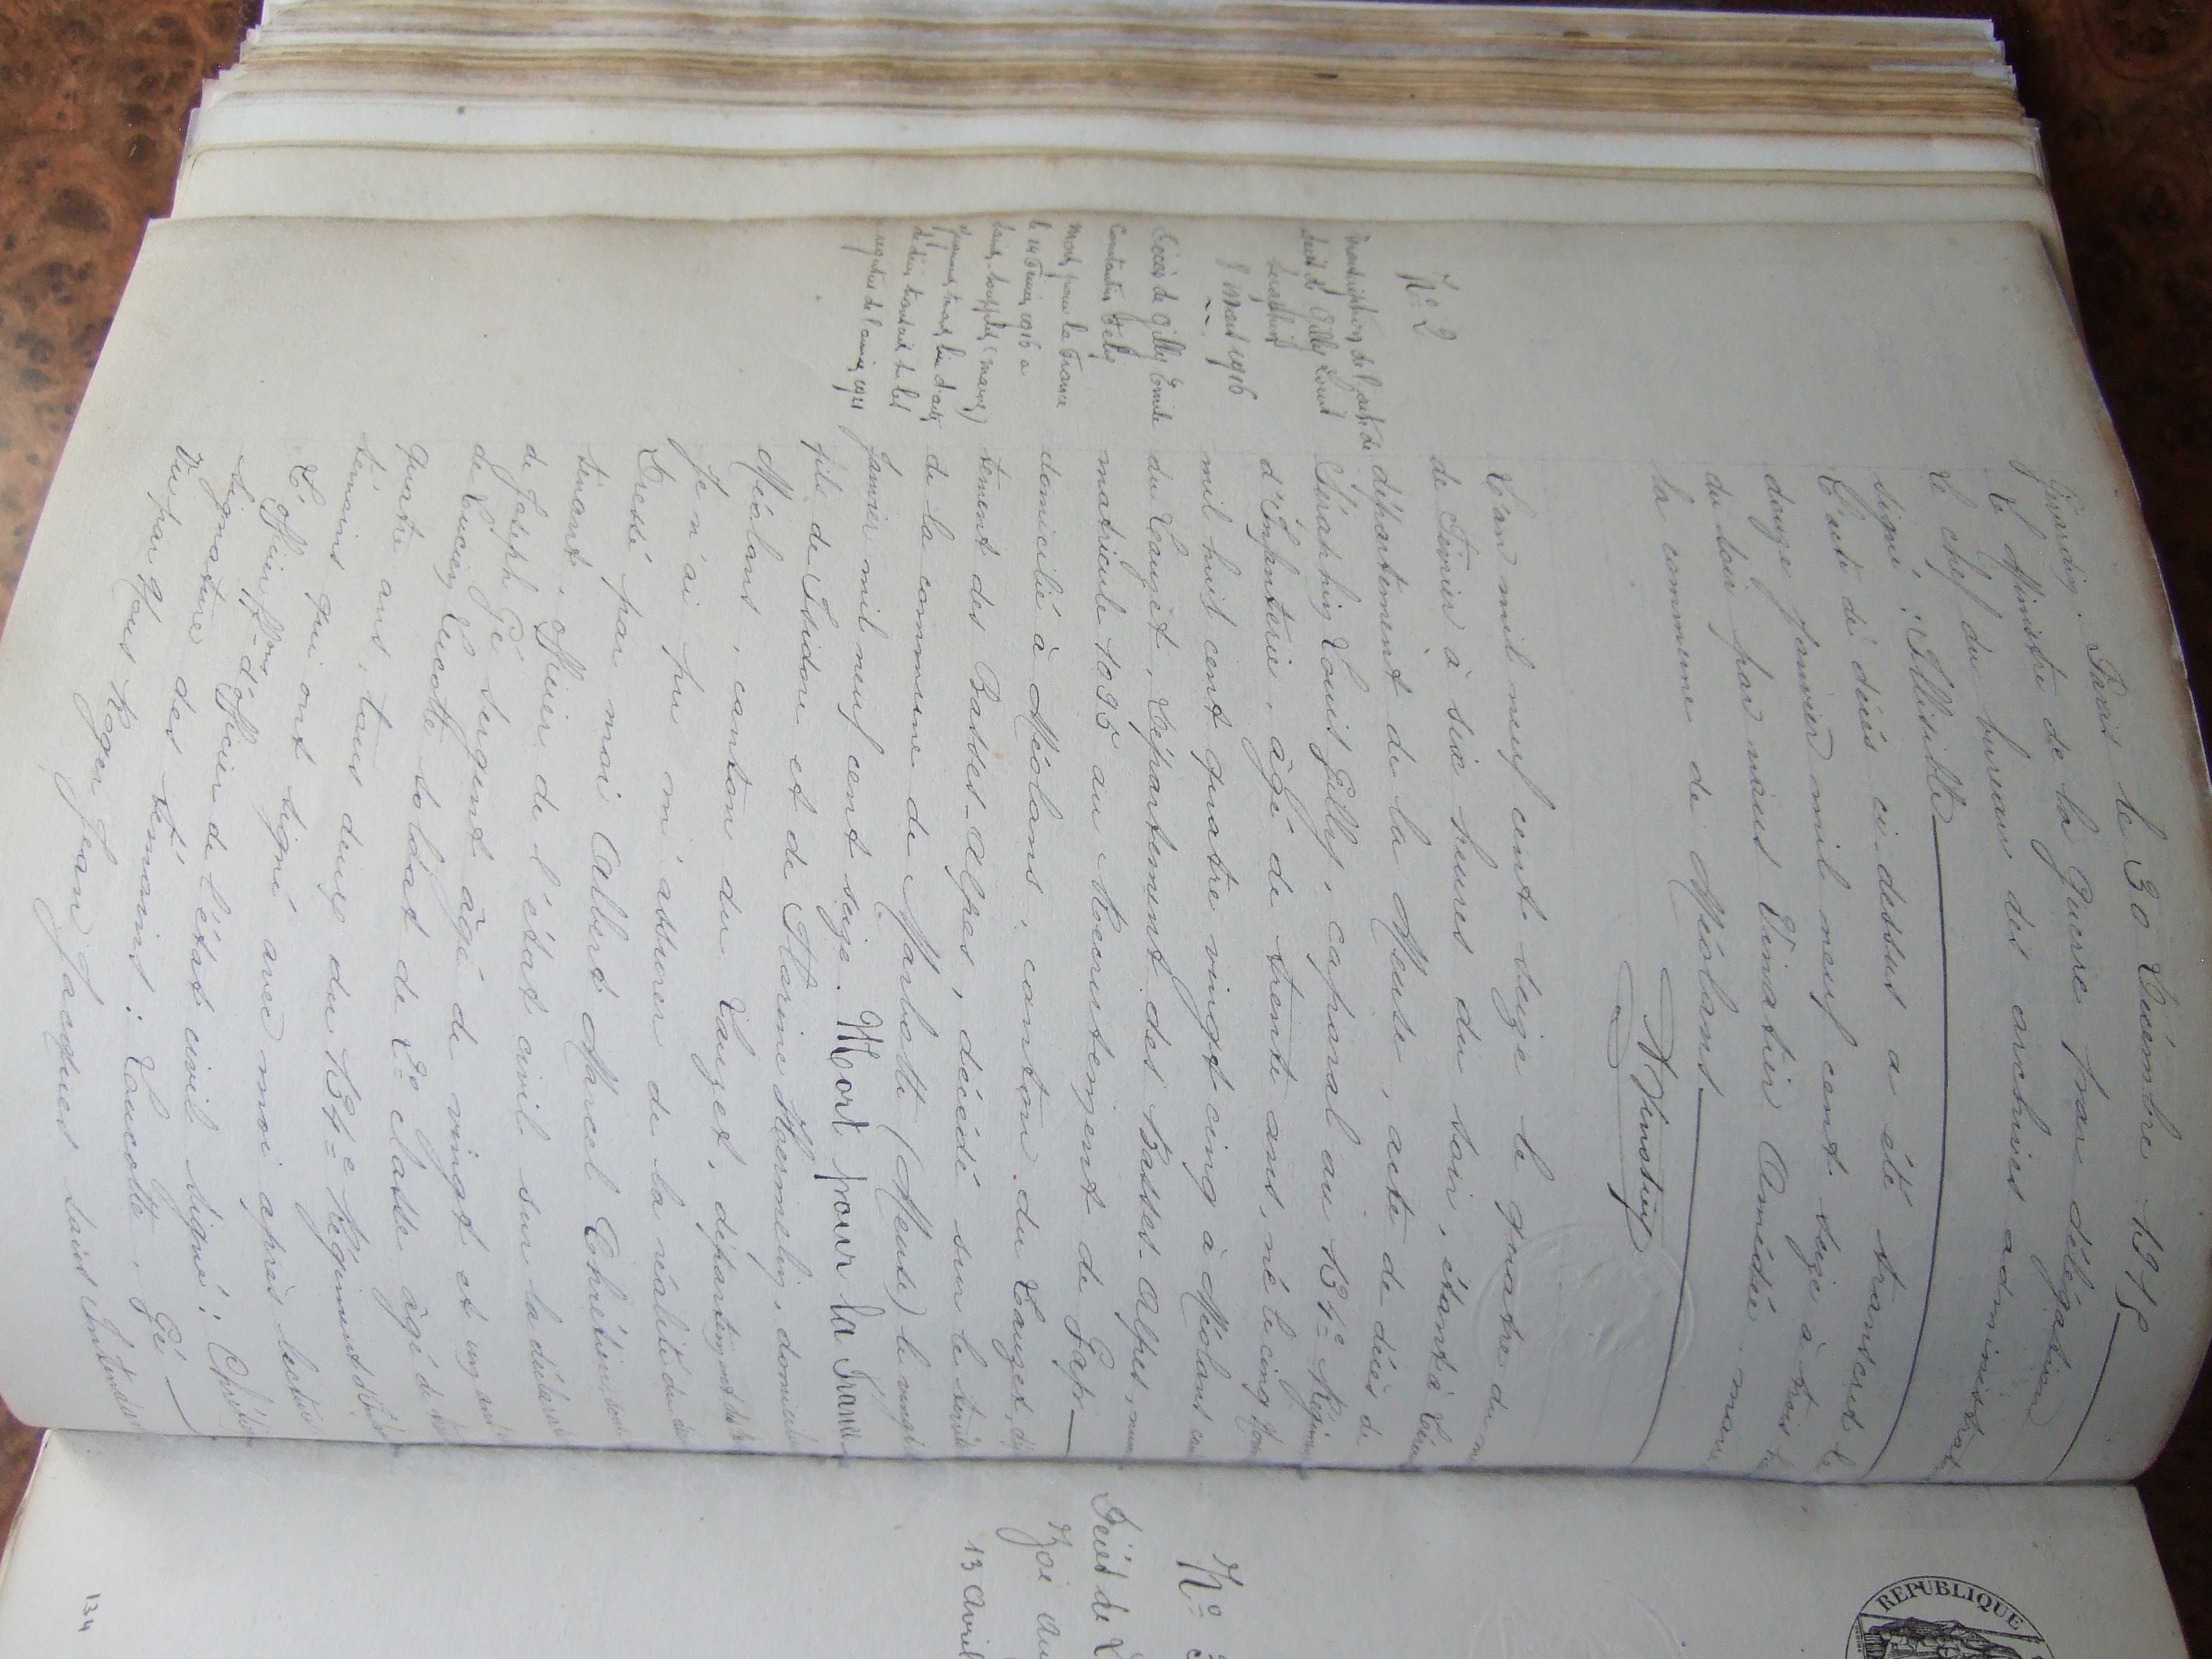 Girardin. Paris le 30 Décembre 1915
P. le Ministre de la Guerre par délégation
Le chef du bureau des archives administrat
signé : Illisible
L'acte de décès ci-dessus a été transcrit le
douze janvier mil neuf cent seize à trois h
du soir par nous Vinatier Amédée, maire
la commune de Méolans
A Vinatier
N° 2
Transcription de l'acte de
décès de Gilly Louis
Séraphin
8 Mars 1916
L'an mil neuf cent seize le quatre du m
de Février à six heures du soir, étant à
département de la Meuse, acte de décès de
Séraphin Louis Gilly, caporal au 134e Régime
d'Infanterie, âgé de trente ans, né le cinq
mil huit cent quatre vingt cinq à Méolans
du Lauzet, Département des Basses-Alpes,
matricule 1095 au Recrutement de Gap
domicilié à Méolans, canton du Lauzet, dé
tement des Basses-Alpes, décédé sur le territ
de la commune de Marbotte (Meuse) le vingt
Janvier mil neuf cent seize. Mort pour la France
fils de Isidore et de Florine Hermelin, domicil
Méolans, canton du Lauzet, département des
Je n'ai pu m'assurer de la réalité du dé
Dressé par moi Albert Marcel Chrétien, sous
tenant, officier de l'état civil sur la déclarat
de Joseph Gé sergent âgé de vingt et un ans
de Lucien Lucotte soldat de 2e classe, âgé de
quatre ans, tous deux du 134e Régiment d'Inf
témoins qui ont signé avec moi après lecture
L'officier ffons d'officier de l'état civil signé : Chrétien
Signature des témoins : Loucotte, Gé
Vu par Nous Roger Jean Jacques sous Intendan
Décès de Gilly Emile
Constantin Félix
Mort pour la France
le 14 Février 1916 à
registre de l'année 1921
N° 3
Décès de
Zoé
13 Avril
REPUBLIQUE
134